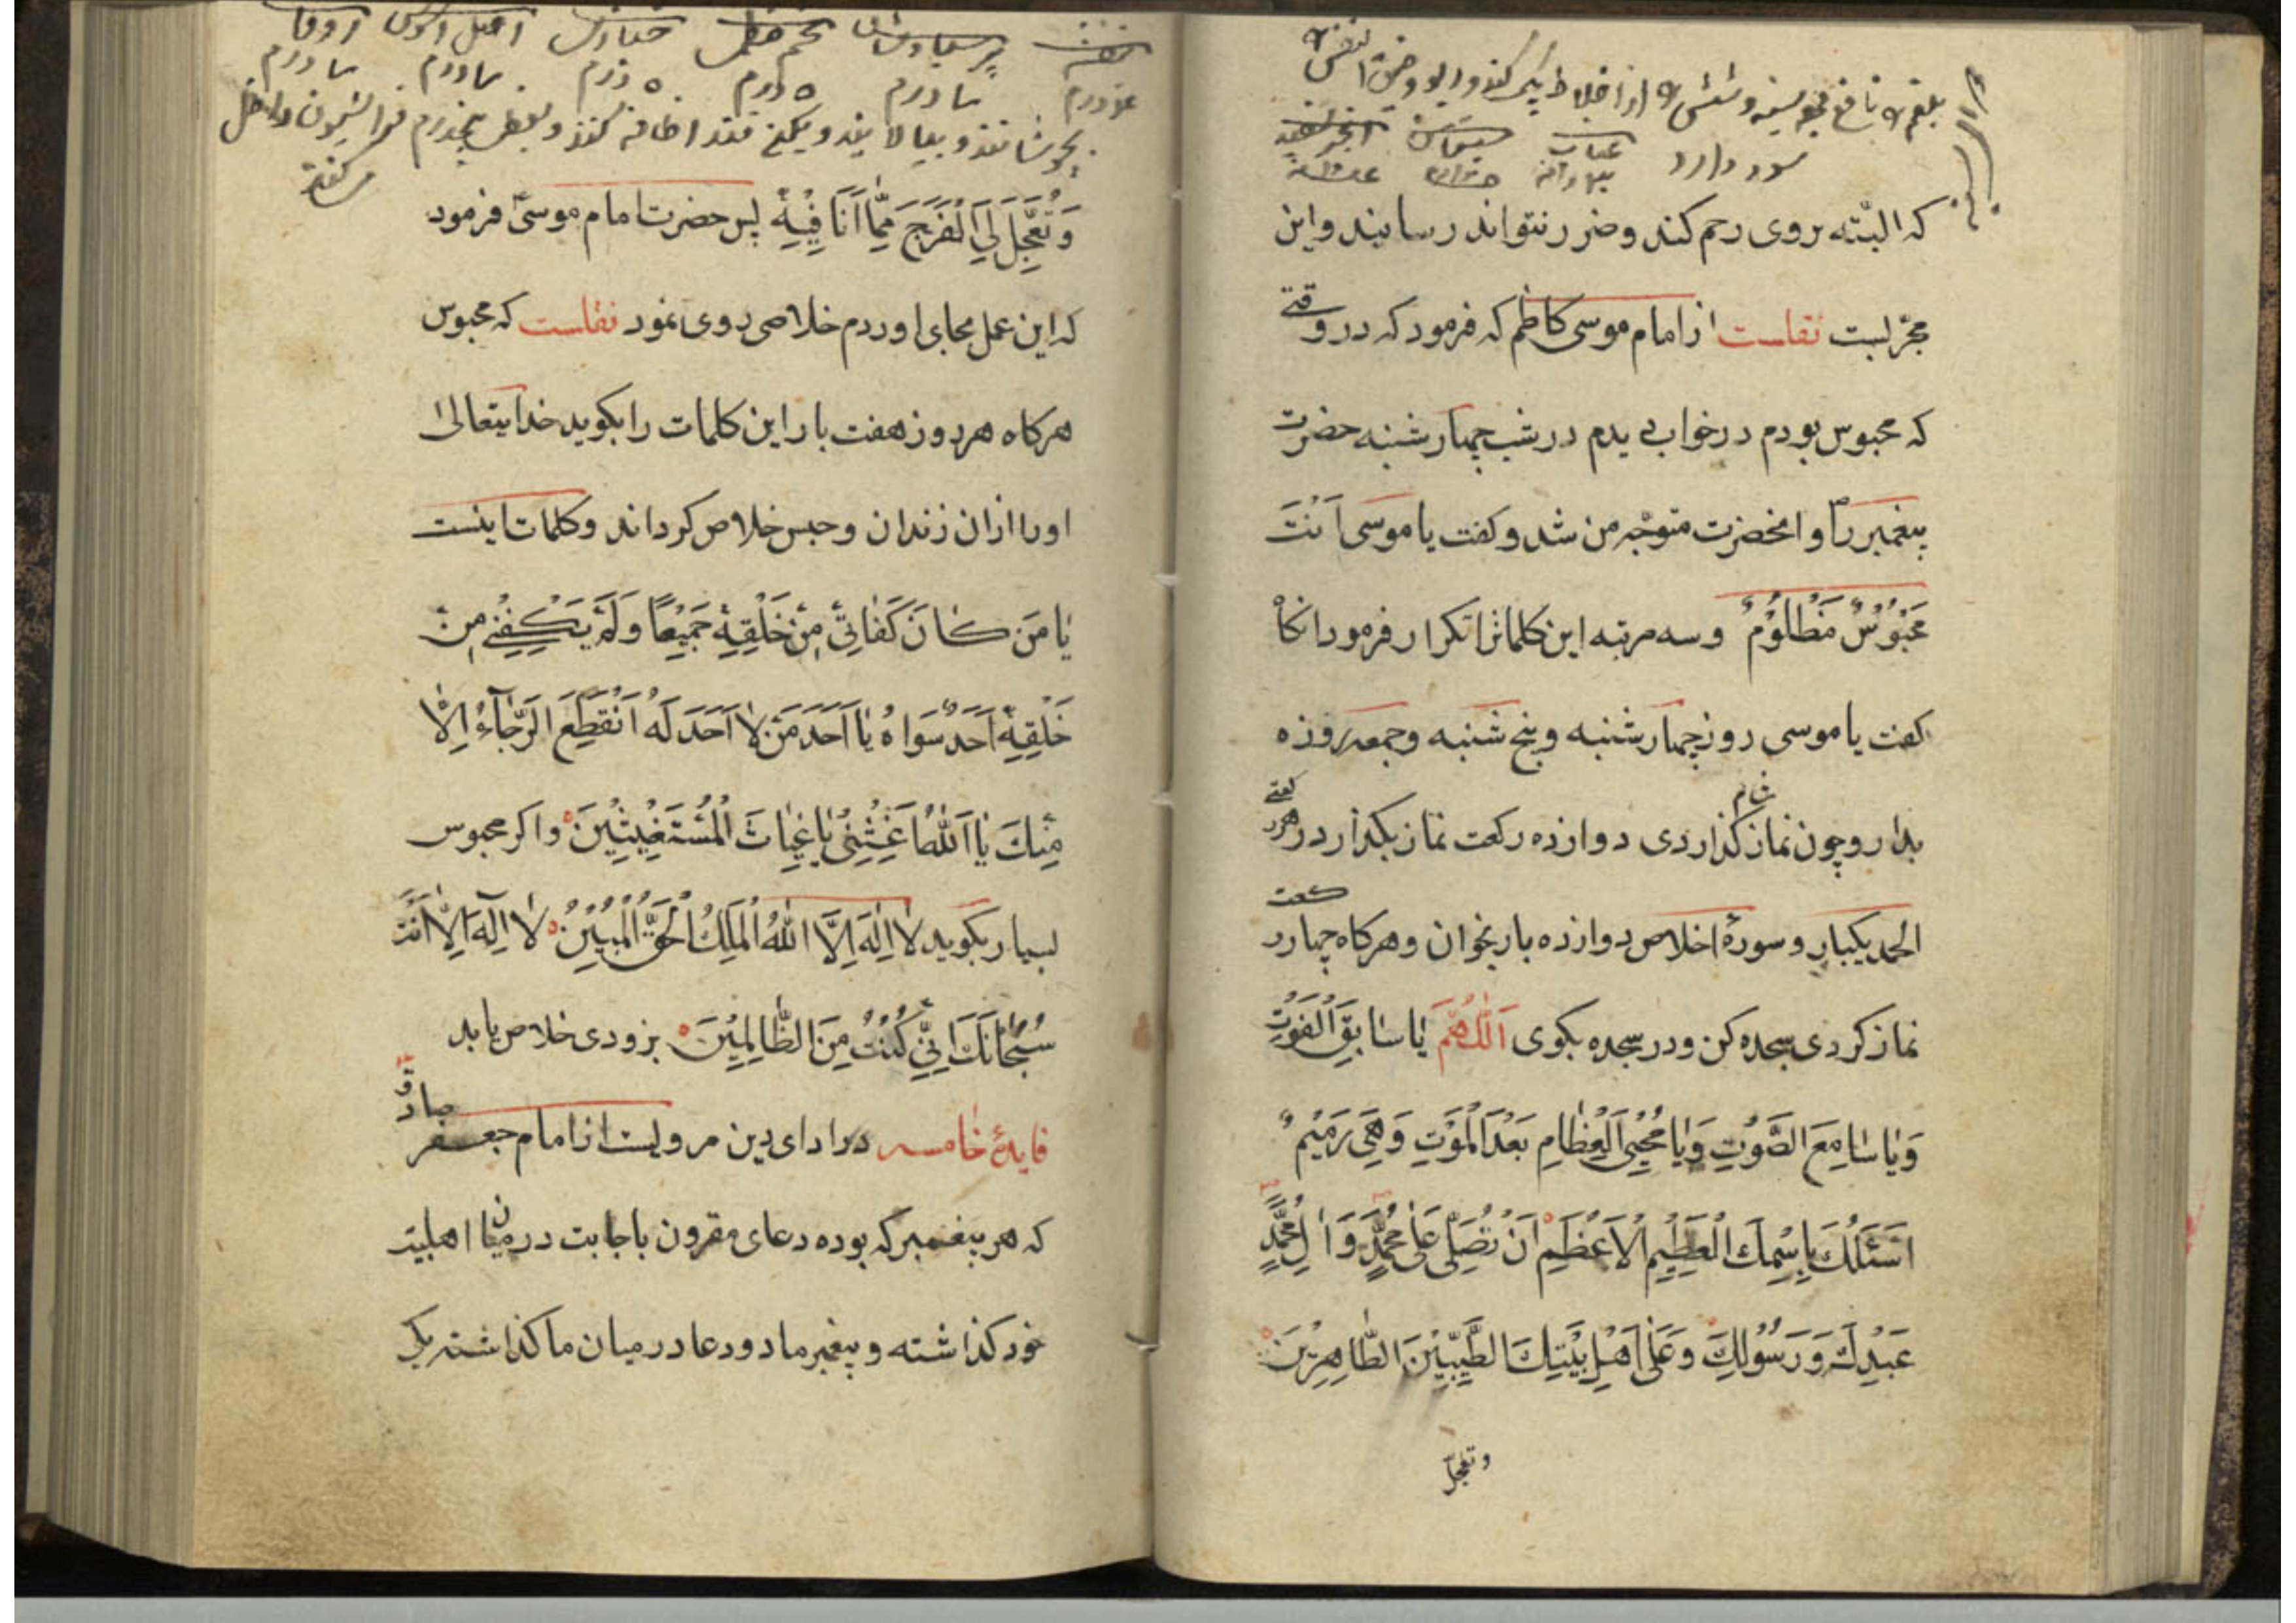 بلغم را نافع
سود دارد
عناب سپستان انجیر سفید
که البتّه بروی رحم کند وضرر نتواند رسانید واین
مجرّبست نقلست از امام موسی کاظم که فرمود که در وقتی
که محبوس بودم در خواب دیدم در شب چهار شنبه حضرت
پیغمبر را و انحضرت متوجّه من شد وکفت یا موسی اَنْتَ
مَحْبُوْسٌ مَظْلُوْمٌ وسه مرتبه این کلماترا تکرار فرمود انکاه
کفت یا موسی روز چهار شنبه و پنج شنبه وجمعه روزه
بدار و چون نماز شام کذاردی دوازده رکعت نماز بکذار در هر رکعتی
الحمد یکبار و سورهٔ اخلاص دوازده بار بخوان وهرکاه چهار رکعت
نماز کردی سجده کن ودر سجده بکوی اَللّٰهُمَّ یٰا سٰابِقَ الْفَوْتِ
وَیٰا سٰامِعَ الصَّوْتِ وَیٰا مُحْیِیَ الْعِظٰامِ بَعْدَ الْمَوْتِ وَهِیَ رَمِیْمٌ
اَسْئَلُكَ بِاِسْمِكَ الْعَظِیْمِ الْاَعْظَمِ اَنْ تُصَلِّیَ عَلٰی مُحَمَّدٍ وَاٰلِ مُحَمَّدٍ
عَبْدِكَ وَرَسُوْلِكَ وَعَلٰی اَهْلِ بَیْتِكَ الطَّیِّبِیْنَ الطّٰاهِرِیْنَ
وتعجّل
بنفشه پرسیاوشان تخم خطمی خبازی اصل السوس
درم درم ۵ درم ۵ درم درم درم
بجوشانند و بپالایند و قند اضافه کنند و بعضی داخل
کنند
وَتُعَجِّلَ لِیَ الْفَرَجَ مِمّٰا اَنَا فِیْهِ پس حضرت امام موسی فرمود
که این عمل بجای اوردم خلاصی روی نمود نقلست که محبوس
هرکاه هر روز هفت بار این کلمات را بکوید خدایتعالی
اورا ازان زندان وحبس خلاص کرداند وکلمات اینست
یٰا مَن كٰانَ كَفٰانِیْ مِنْ خَلْقِهِ جَمِیْعًا وَلَمْ یَكْفِنِیْ مِنْ
خَلْقِهِ اَحَدٌ سِوَاهُ یٰا اَحَدَ مَنْ لٰا اَحَدَ لَهُ اَنْقَطَعَ الرَّجٰآءُ اِلّٰا
مِنْكَ یٰا اَللّٰهُ اَغِثْنِیْ یٰا غِیٰاثَ الْمُسْتَغِیْثِیْنَ واکر محبوس
بسیار بکوید لٰا اِلٰهَ اِلَّا اللّٰهُ الْمَلِكُ الْحَقُّ الْمُبِیْنُ لٰا اِلٰهَ اِلّٰا اَنْتَ
سُبْحٰانَكَ اِنِّیْ كُنْتُ مِنَ الظّٰالِمِیْنَ بزودی خلاص یابد
فایدهٔ خامسه در ادای دین مرویست از امام جعفر صادق
که هر پیغمبر که بوده دعای مقرون باجابت در میان اهلبیت
خود کذاشته و پیغمبر ما دو دعا در میان ما کذاشته یکی